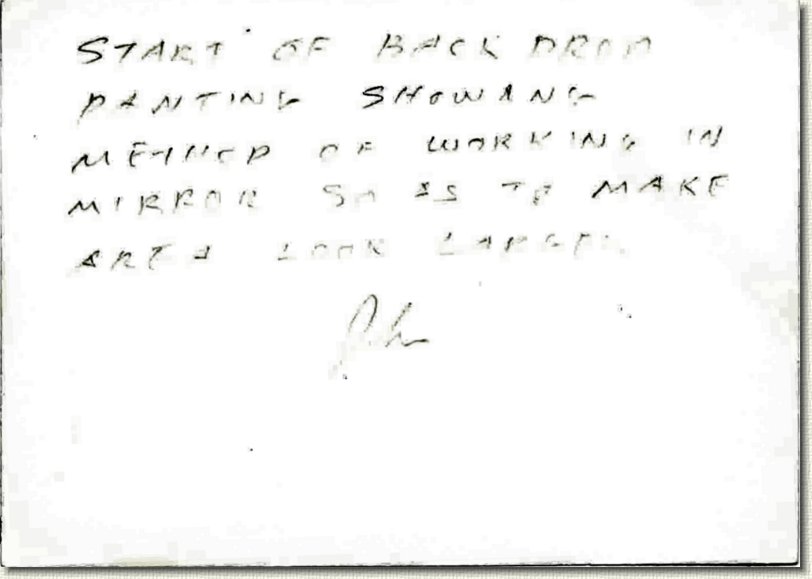 START OF BACK DROP
PANTING SHOWING
METHOD OF WORKING IN
MIRROR SO AS TO MAKE
AREA LOOK LARGER